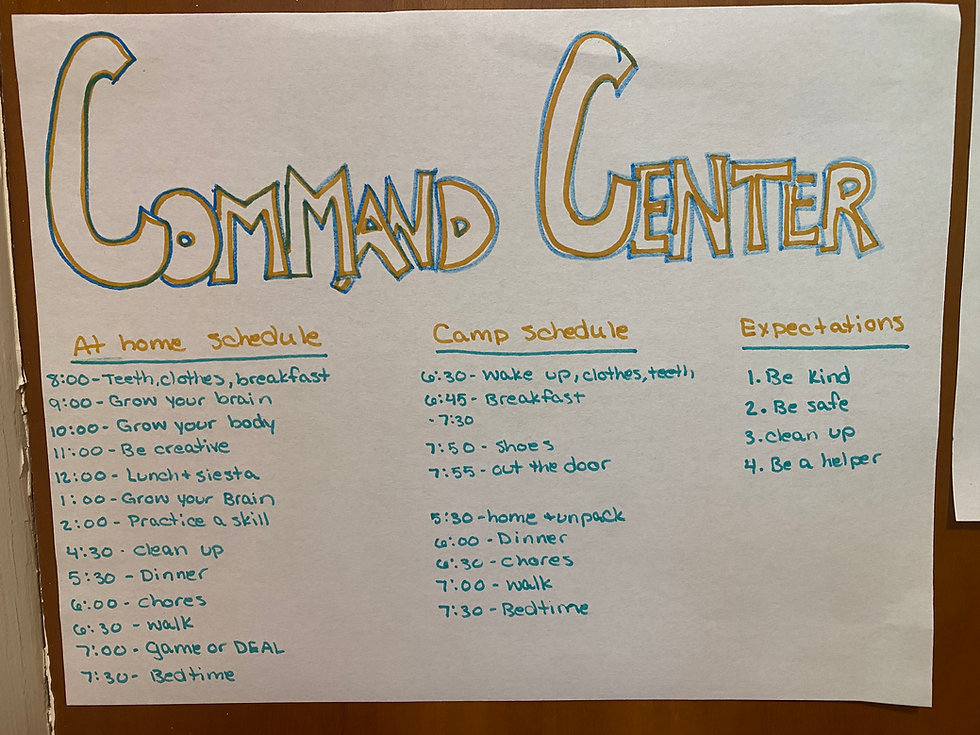 COMMAND CENTER
At home schedule
8:00-Teeth, clothes, breakfast
9:00- Grow your brain
10:00- Grow your body
11:00- Be creative
12:00- Lunch + siesta
1:00- Grow your Brain
2:00- Practice a skill
4:30 - clean up
5:30 - Dinner
6:00 - chores
6:30 - walk
7:00 - game or DEAL
7:30- Bedtime
Camp schedule
6:30- wake up, clothes, teeth
6:45- Breakfast
- 7:30
7:50- shoes
7:55- out the door
5:30-home + unpack
6:00- Dinner
6:30- chores
7:00 - walk
7:30- Bedtime
Expectations
1. Be kind
2. Be safe
3. clean up
4. Be a helper